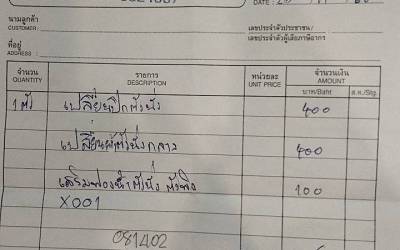 DATE :
นามลูกค้า
CUSTOMER
เลขประจำตัวประชาชน /
เลขประจำตัวผู้เสียภาษีอากร
ที่อยู่
ADDRESS
จำนวน รายการ หน่วยละ จำนวนเงิน
QUANTITY DESCRIPTION UNIT PRICE AMOUNT
บาท/Baht ส.ต./Stg.
1 ตัว เปลี่ยนปีกตัวนั่ง 400
เปลี่ยนผ้าตัวนั่งกลาง 400
เสริมฟองน้ำตัวนั่ง ตัวพิง 100
X001
081402